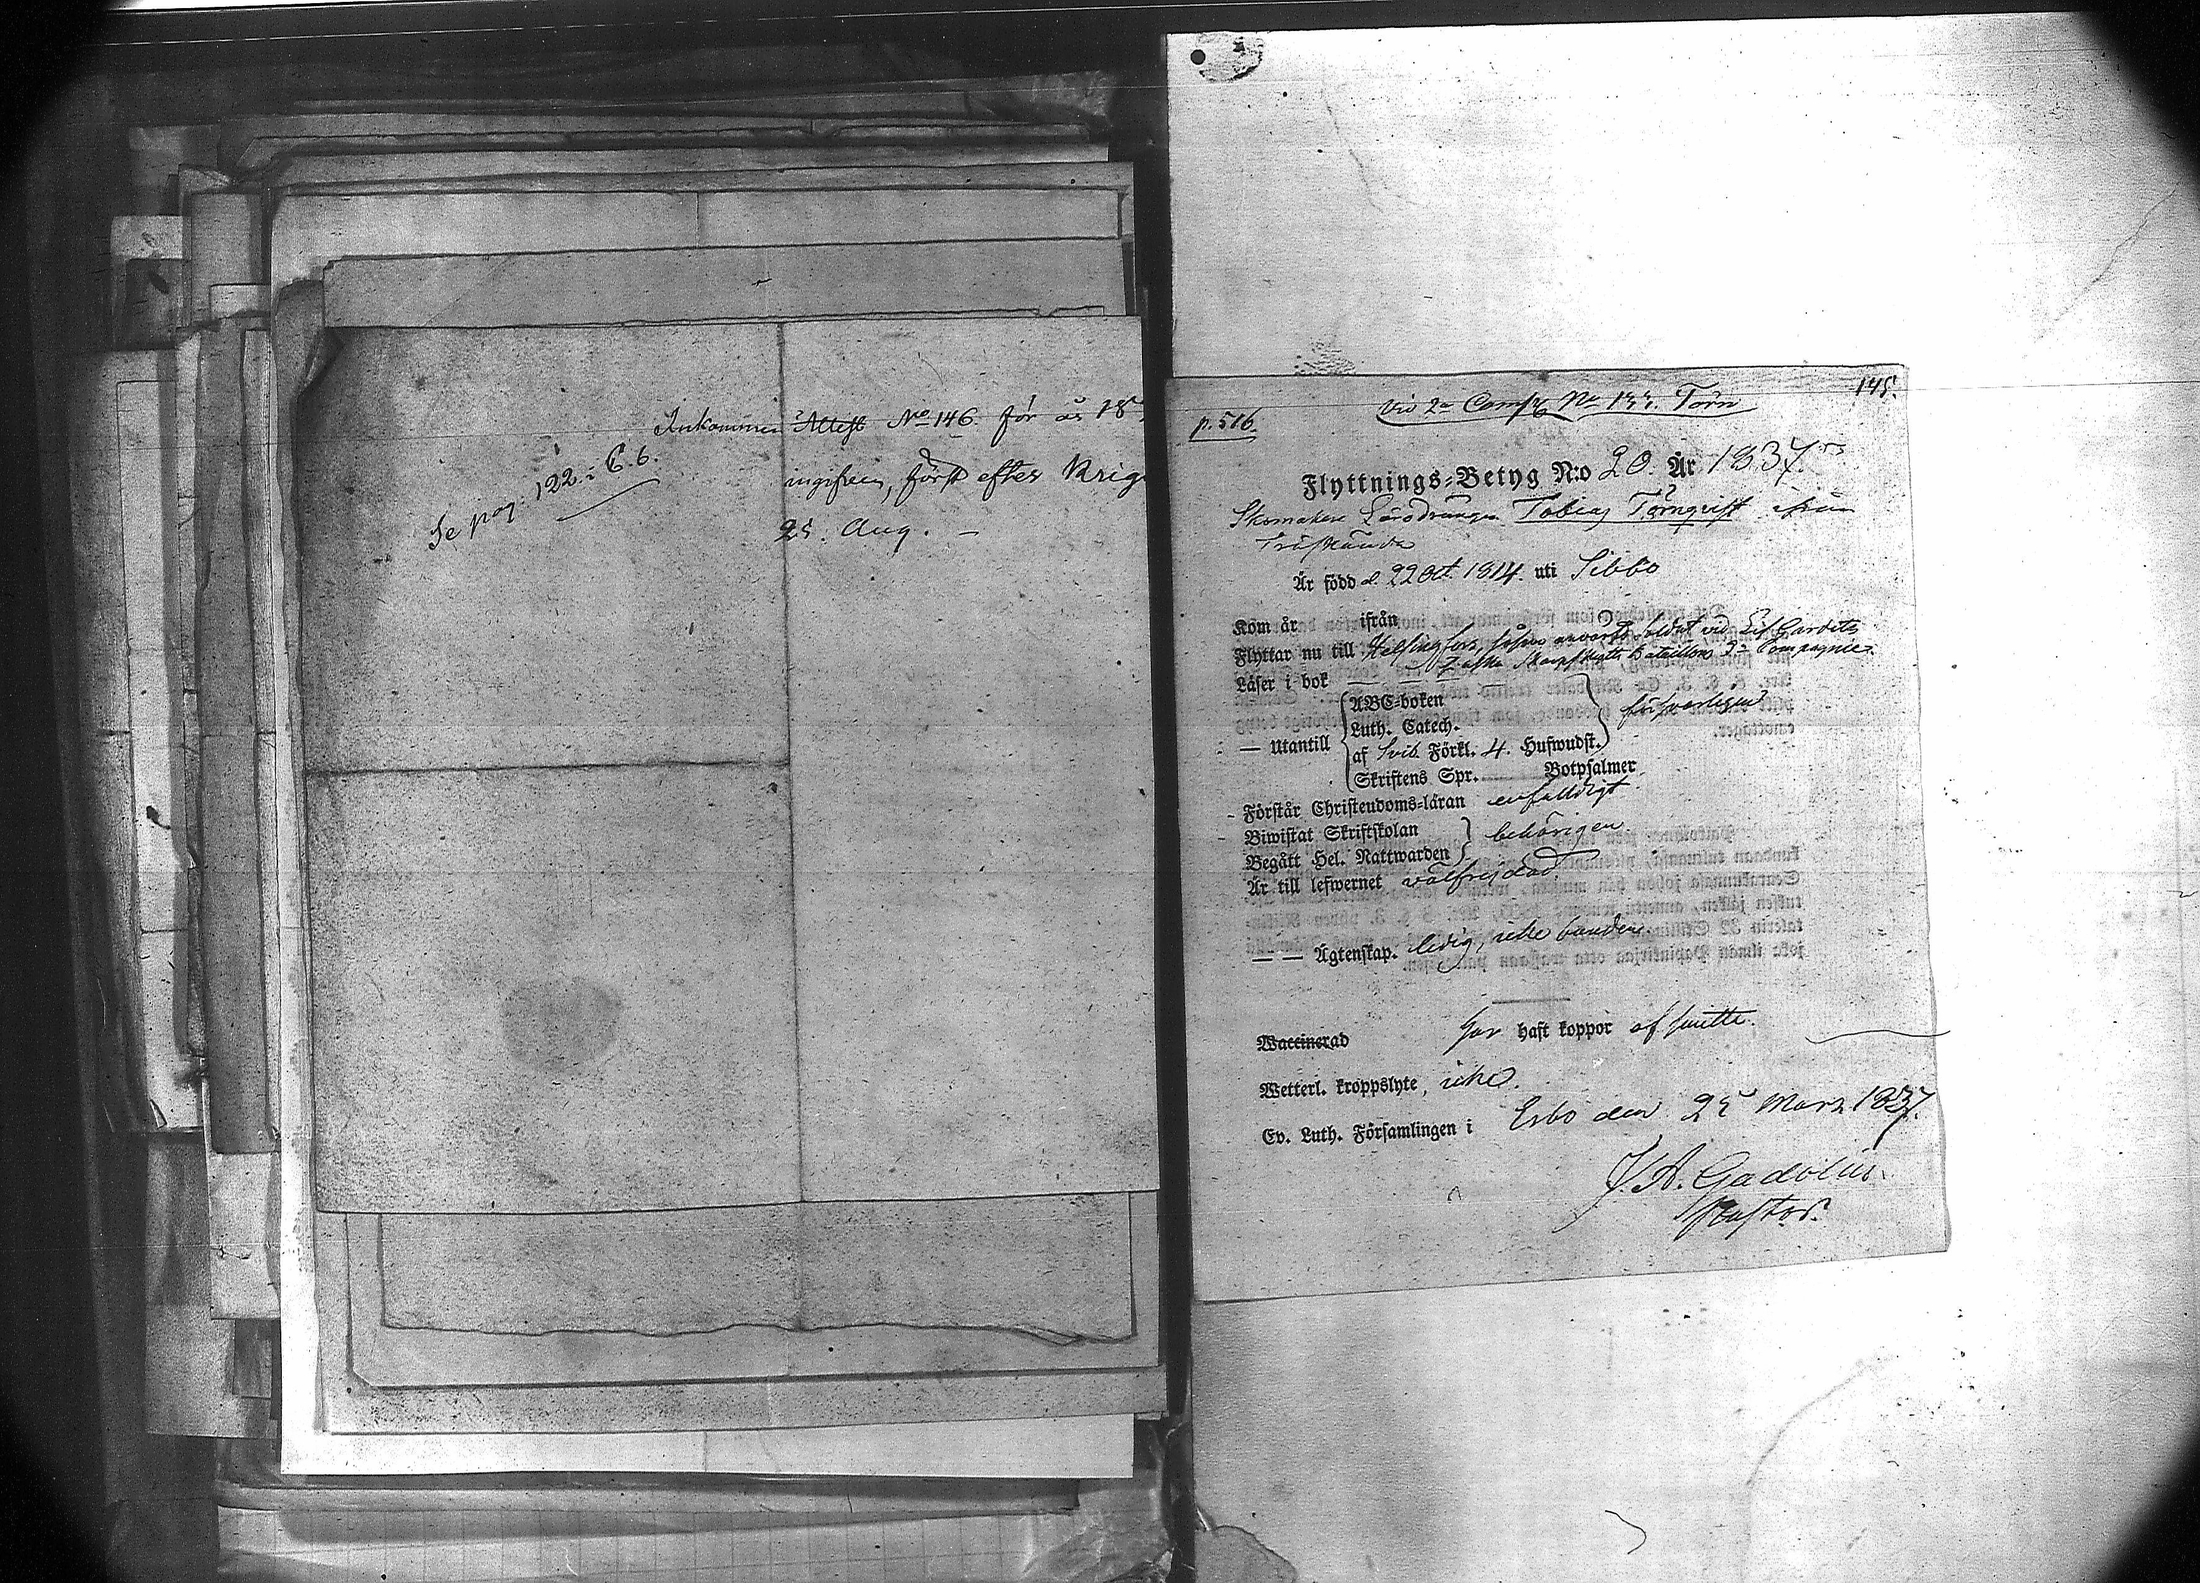 Inkommen Attest No 146. för år 18
ingifven, först efter Krigs
25. Aug. —
Se pag. 122. C. 6.
145.
vid 2a Comp. No 155. Törn
p. 516.
Flyttnings-Betyg N:o 20. År 1837.
Skomakare Lärodrängen Tobias Törnqvist ifrån
Träskända
Är född d. 22 Oct. 1814. uti Sibbo
Kom år ifrån
Flyttar nu till Helsingfors, såsom soldat vid Lif Gardets
Finska Skarpskytte Bataillons 2a Compagnie.
Läser i bok — — — —
— Utantill
ABC-boken
Luth. Catech.
af Sveb. Förkl. 4. Hufwudst.
Skriftens Spr. — Botpsalmer
försvarligen
Förstår Christendoms-läran enfaldigt
Biwistat Skriftskolan
Begått Hel. Nattwarden
behörigen
Är till lefwernet välfrejdad.
— — Ägtenskap. ledig, icke bunden.
Waccinerad har haft koppor af smitte.
Wetterl. kroppslyte, icke.
Ev. Luth. Församlingen i Esbo den 25 Mars 1837.
J. A. Gadolin.
Pastor.